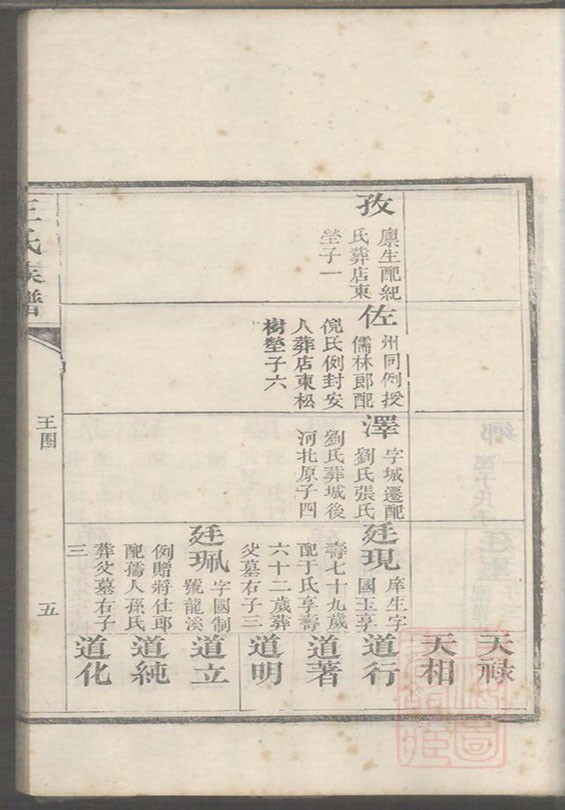 孜
廪生配紀
氏葬店東
塋子一
佐
州同例授
儒林郎配
倪氏例封安
人葬店東松
樹塋子六
澤
字城遷配
劉氏張氏
劉氏葬城後
河北原子四
廷現
庠生字
國玉享
壽七十九歲
配于氏享壽
六十二歲葬
父墓右子三
廷珮
字國制
號龍溪
例贈將仕郎
配孺人孫氏
葬父墓右子
三
天祿
天相
道行
道著
道明
道立
道純
道化
王氏族譜
王圈
五